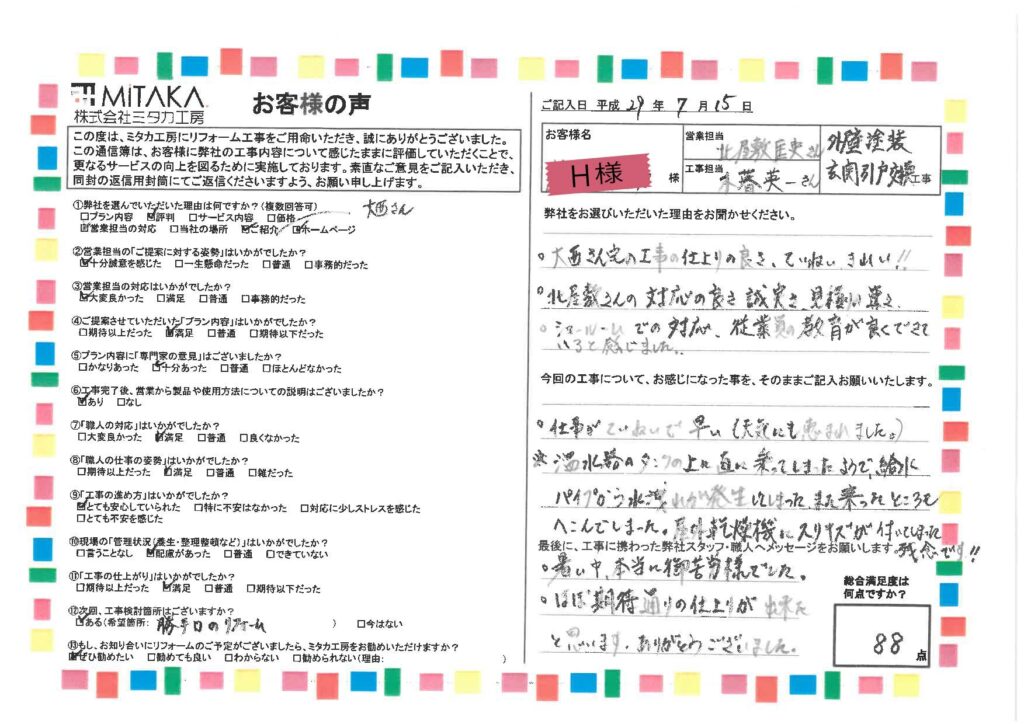 MiTAKA
株式会社ミタカ工房
お客様の声
この度は、ミタカ工房にリフォーム工事をご用命いただき、誠にありがとうございました。
この通信簿は、お客様に弊社の工事内容について感じたままに評価していただくことで、
更なるサービスの向上を図るために実施しております。素直なご意見をご記入いただき、
同封の返信用封筒にてご返信くださいますよう、お願い申し上げます。
①弊社を選んでいただいた理由は何ですか?(複数回答可) 大西さん
□プラン内容 ☑評判 □サービス内容 □価格
☑営業担当の対応 □当社の場所 ☑ご紹介 ☑ホームページ
②営業担当の「ご提案に対する姿勢」はいかがでしたか?
☑十分誠意を感じた □一生懸命だった □普通 □事務的だった
③営業担当の対応はいかがでしたか?
☑大変良かった □満足 □普通 □事務的だった
④ご提案させていただいた「プラン内容」はいかがでしたか?
□期待以上だった ☑満足 □普通 □期待以下だった
⑤プラン内容に「専門家の意見」はございましたか?
□かなりあった ☑十分あった □普通 □ほとんどなかった
⑥工事完了後、営業から製品や使用方法についての説明はございましたか?
☑あり □なし
⑦「職人の対応」はいかがでしたか?
□大変良かった ☑満足 □普通 □良くなかった
⑧「職人の仕事の姿勢」はいかがでしたか?
□期待以上だった ☑満足 □普通 □雑だった
⑨「工事の進め方」はいかがでしたか?
☑とても安心していられた □特に不安はなかった □対応に少しストレスを感じた
□とても不安を感じた
⑩現場の「管理状況(養生・整理整頓など)」はいかがでしたか?
□言うことなし ☑配慮があった □普通 □できていない
⑪「工事の仕上がり」はいかがでしたか?
□期待以上だった ☑満足 □普通 □期待以下だった
⑫次回、工事検討箇所はございますか?
☑ある(希望箇所: 勝手口のリフォーム ) □今はない
⑬もし、お知り合いにリフォームのご予定がございましたら、ミタカ工房をお勧めいただけますか?
☑ぜひ勧めたい □勧めても良い □わからない □勧められない(理由: )
ご記入日 平成 29 年 7 月 15 日
お客様名
H様 様
営業担当 北屋敷匡史さん
工事担当 木暮英一さん
外壁塗装
玄関引戸交換工事
弊社をお選びいただいた理由をお聞かせください。
○大西さん宅の工事の仕上りの良さ、ていねい きれい!!
○北屋敷さんの対応の良さ 誠実さ、見積り
○ショールームでの対応、従業員の教育が良くできて
いると感じました。
今回の工事について、お感じになった事を、そのままご記入お願いいたします。
○仕事がていねいで早い(天気にも恵まれました。)
※温水器のタンクの上に直に乗ってしまったようで、給水
パイプから水漏れが発生してしまった また乗ったところも
へこんでしまった。屋外乾燥機にスリキズが付いてしまった
残念です!!
最後に、工事に携わった弊社スタッフ・職人へメッセージをお願いします。
○暑い中、本当に御苦労様でした。
○ほぼ期待通りの仕上りが出来た
と思います。ありがとうございました。
総合満足度は
何点ですか?
88 点